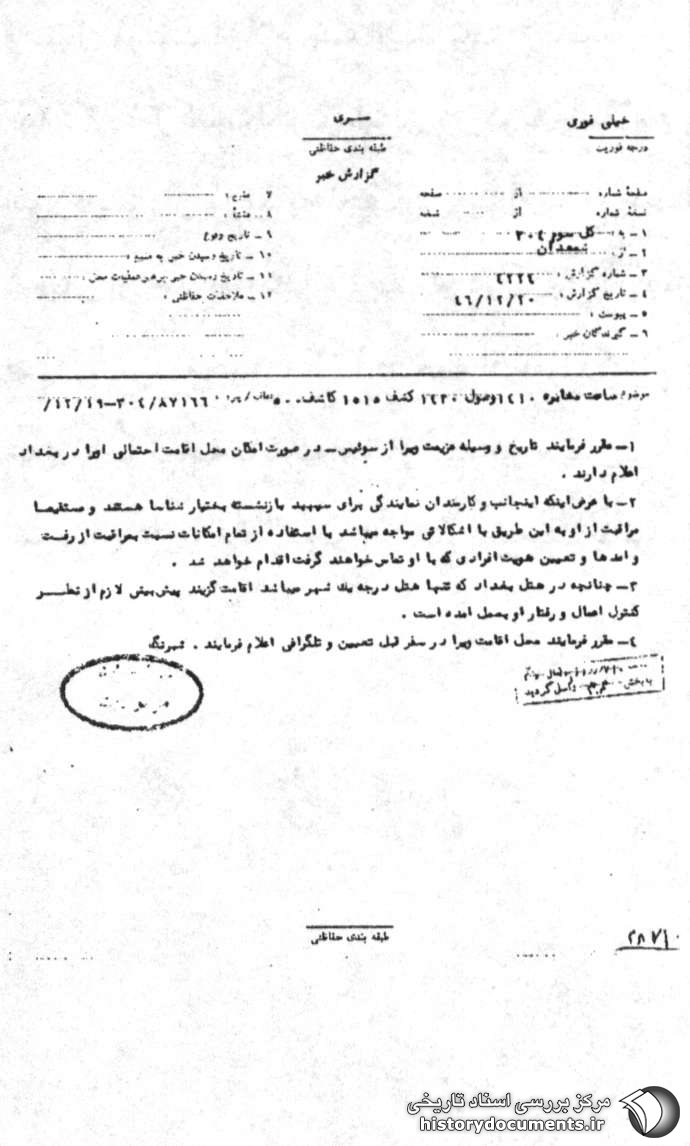 خیلی فوری
درجه فوریت
سری
طبقه بندی حفاظتی
گزارش خبر
صفحهٔ شماره از صفحه
نسخهٔ شماره از نسخه
۱ــ به: کل سوم ۳۰۴
۲ــ از:
۳ــ شماره گزارش: ۴۲۲۴
۴ــ تاریخ گزارش: ۴۶/۱۲/۲۰
۵ــ پیوست:
۶ــ گیرندگان خبر:
۷
۸ــ منشأ:
۹ــ تاریخ وقوع
۱۰ــ تاریخ رسیدن خبر به منبع:
۱۱ــ تاریخ رسیدن خبر برهبر عملیات محل:
۱۲ــ ملاحظات حفاظتی:
موضوع: ساعت مخابره ۱۴۱۰ وصول ۱۴۳۰ کشف ۱۵۱۵ کاشف ۳۰۴/۸۷۱۶۶–۱۲/۱۹/
۱ــ مقرر فرمایند تاریخ و وسیله عزیمت ویرا از سوئیس ــ در صورت امکان محل اقامت احتمالی اورا در بغداد
اعلام دارند .
۲ــ با عرض اینکه اینجانب و کارمندان نمایندگی برای سپهبد بازنشسته بختیار شناسا هستند و مستقیما
مراقبت از او به این طریق با اشکالاتی مواجه میباشد با استفاده از تمام امکانات نسبت بمراقبت از رفت
و امدها و تعیین هویت افرادی که با او تماس خواهند گرفت اقدام خواهد شد .
۳ــ چنانچه در هتل بغداد که تنها هتل درجه یك شهر میباشد اقامت گزیند پیش بینی لازم از نظر
کنترل اعمال و رفتار او بعمل امده است .
۴ــ مقرر فرمایند محل اقامت ویرا در سفر قبل تعیین و تلگرافی اعلام فرمایند .
به بخش واصل گردید
طبقه بندی حفاظتی
مرکز بررسی اسناد تاریخی
historydocuments.ir